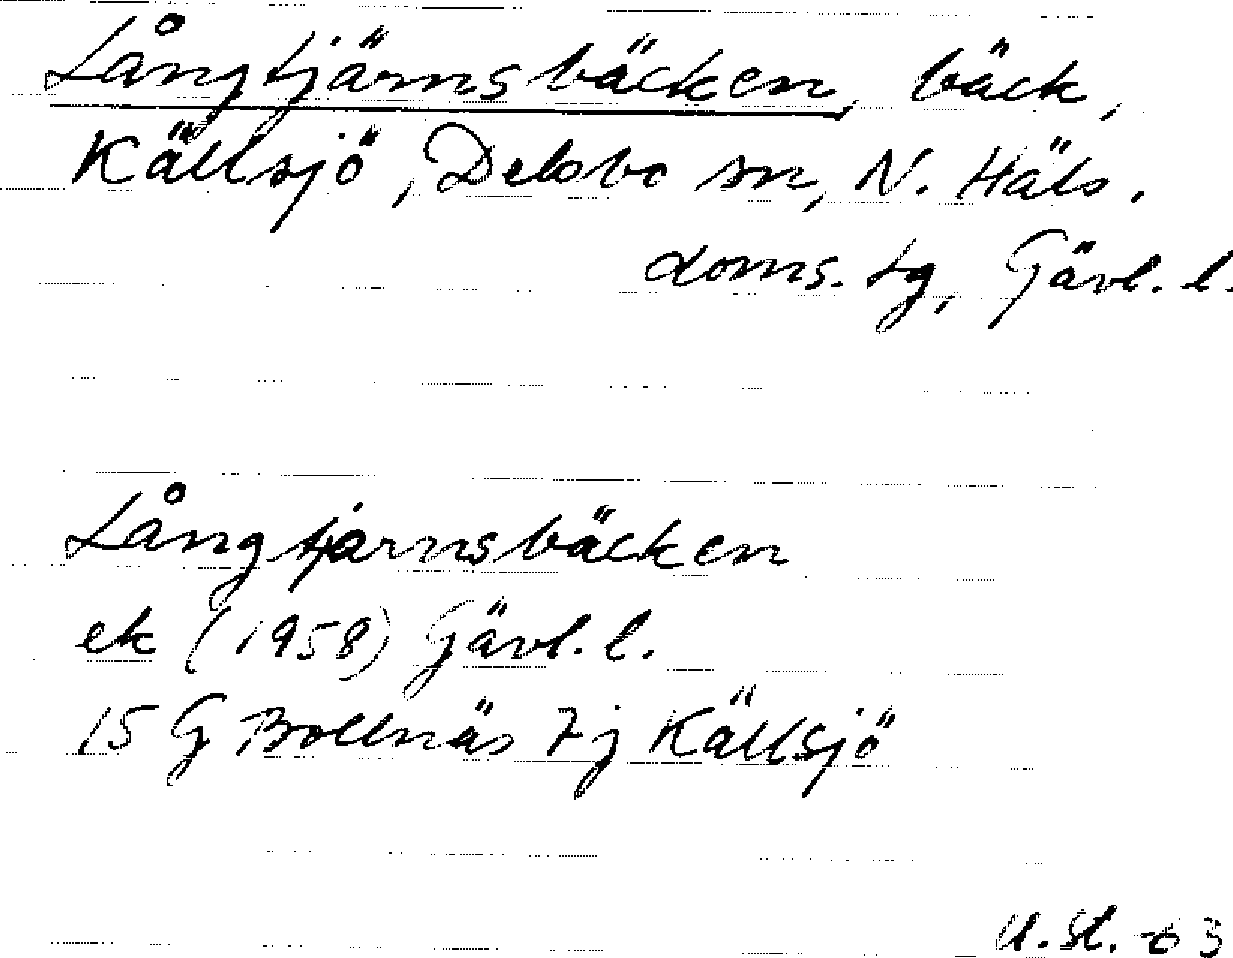 Långtjärnsbäcken, bäck,
Källsjö, Delsbo sn, N. Häls.
doms. tg, Gävl. l.
Långtjärnsbäcken
ek (1958) Gävl. l.
15 G Bollnäs 7j Källsjö
U. St. -63